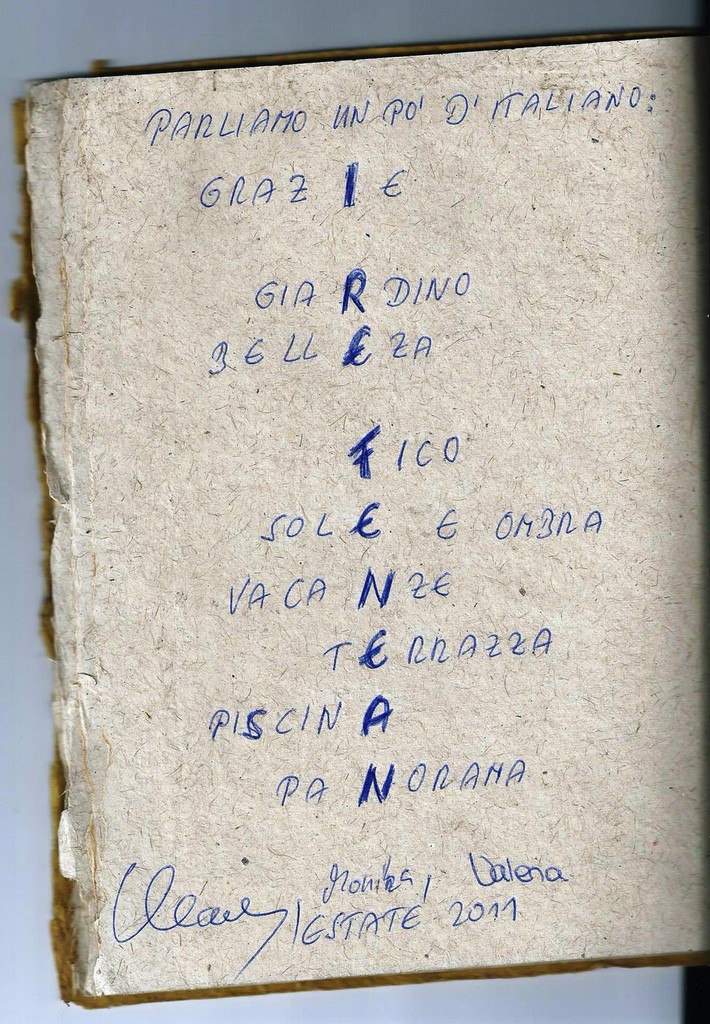 PARLIAMO UN PO' D'ITALIANO:
GRAZIE
GIARDINO
BELLEZA
FICO
SOLE E OMBRA
VACANZE
TERRAZZA
PISCINA
PANORAMA
Monika, Valeria
ESTATE 2011